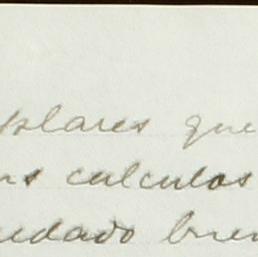 plares que
ns calculos
uedado buen